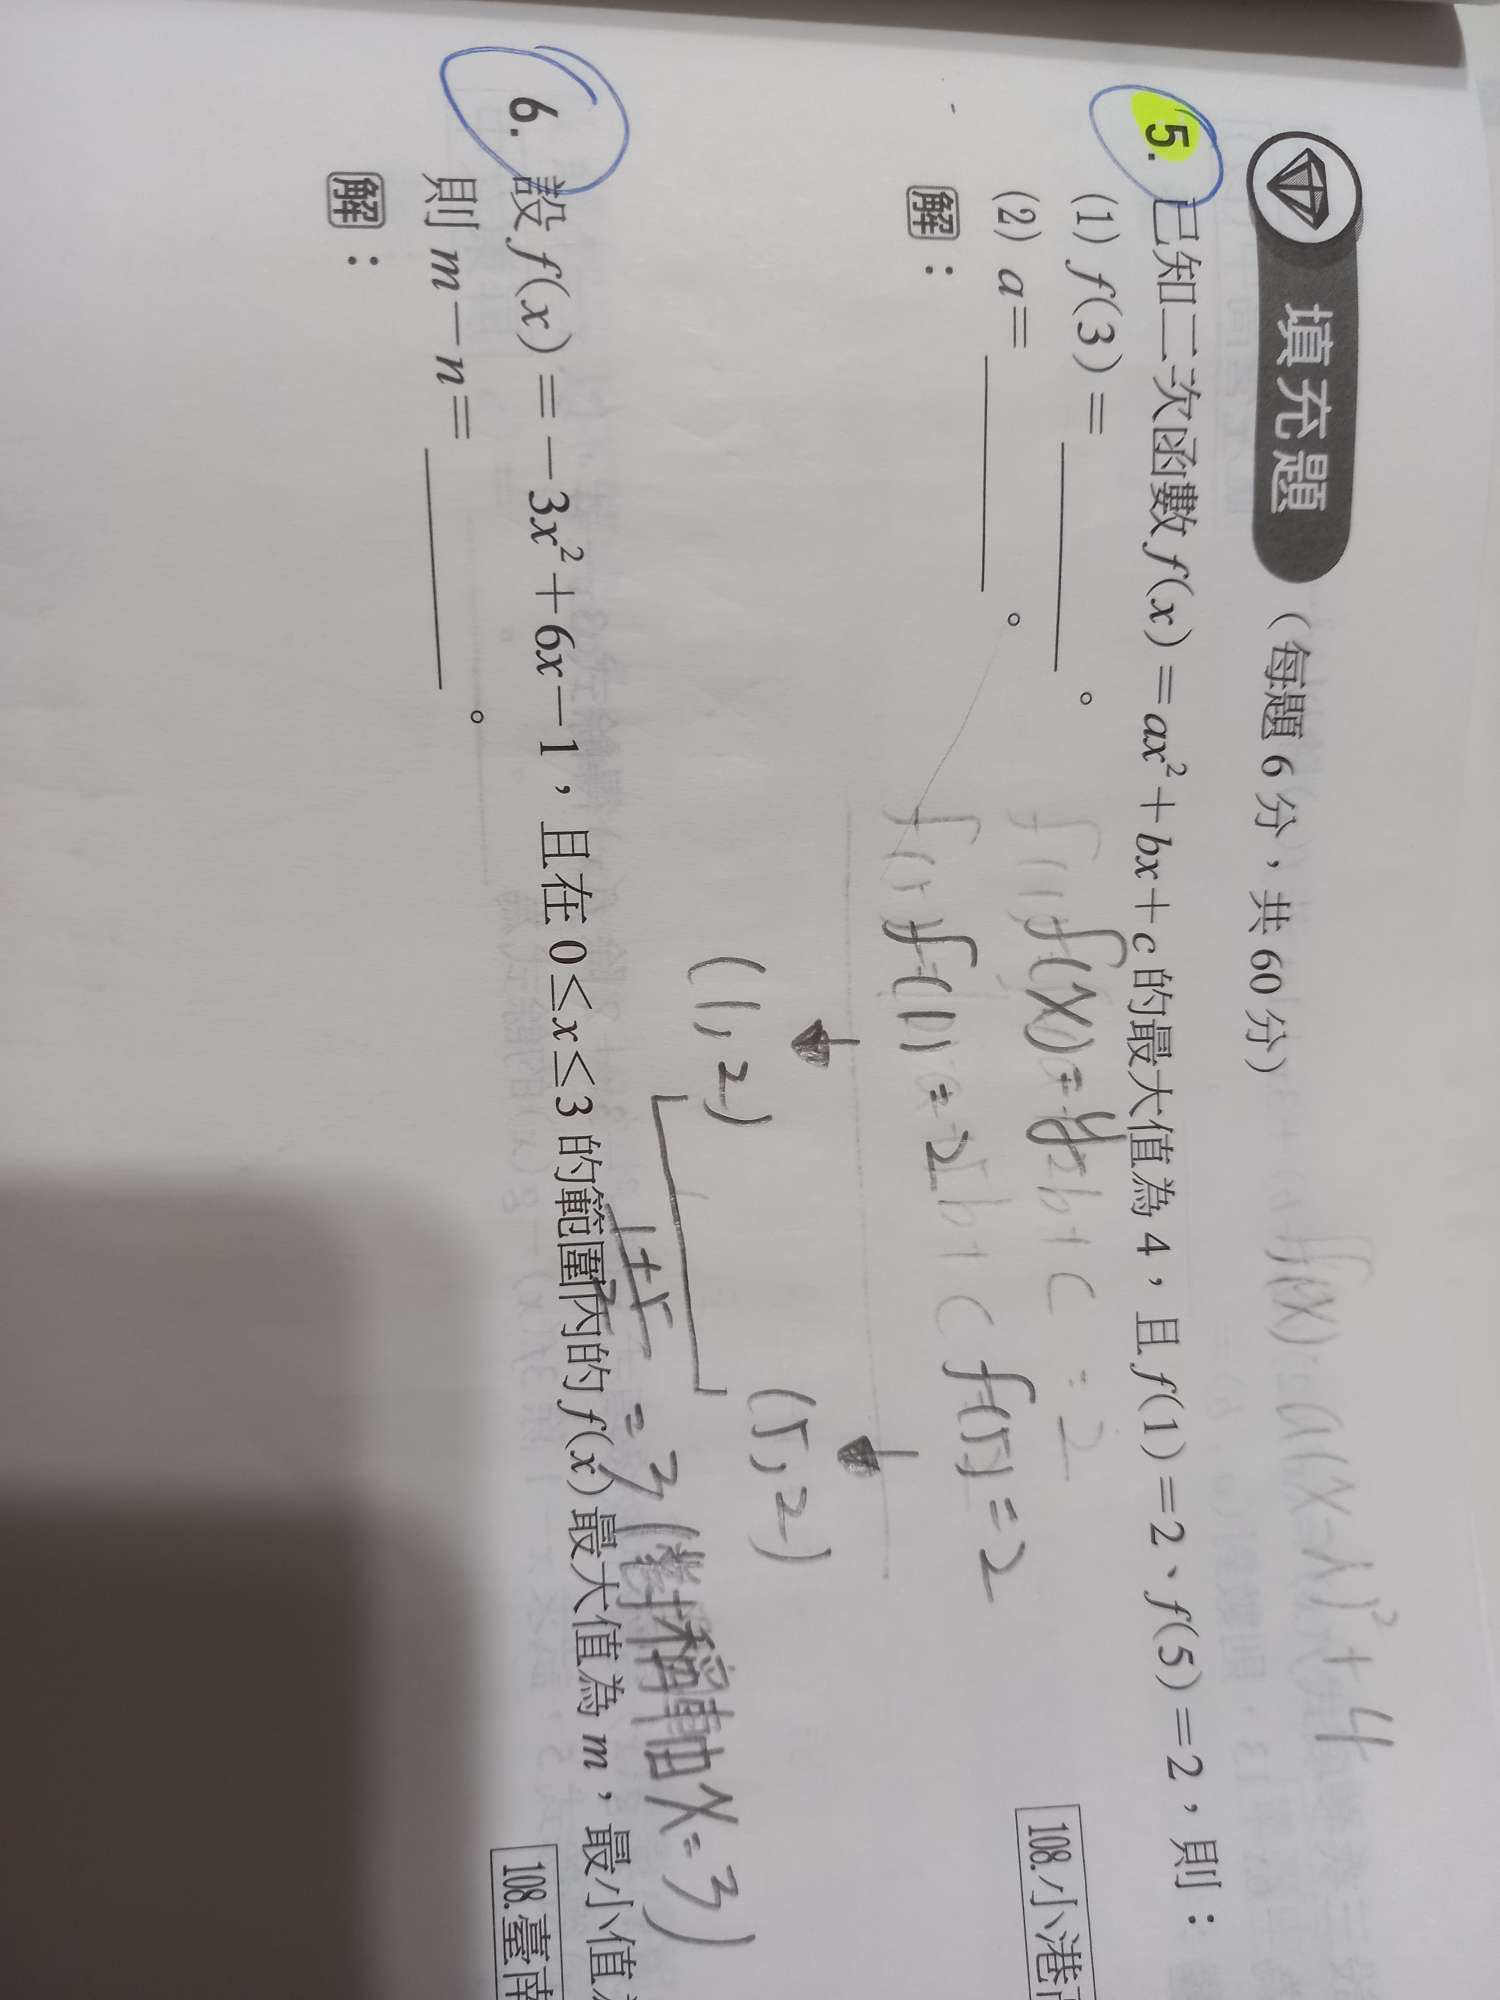 填充題（每題6分，共60分）
f(x)=a(x-h)²+4
5. 已知二次函數 f(x)=ax²+bx+c 的最大值為4，且 f(1)=2、f(5)=2，則：
(1) f(3)=＿＿＿。
108.小港
f(x)=y
(2) a=＿＿＿。
f(1)=2 f(5)=2
解：
(1,2) (5,2)
1+5
2
=3 (對稱軸 x=3)
6. 設 f(x)=-3x²+6x-1，且在 0≤x≤3 的範圍內的 f(x) 最大值為 m，最小值
則 m-n=＿＿＿。
108.臺南
解：